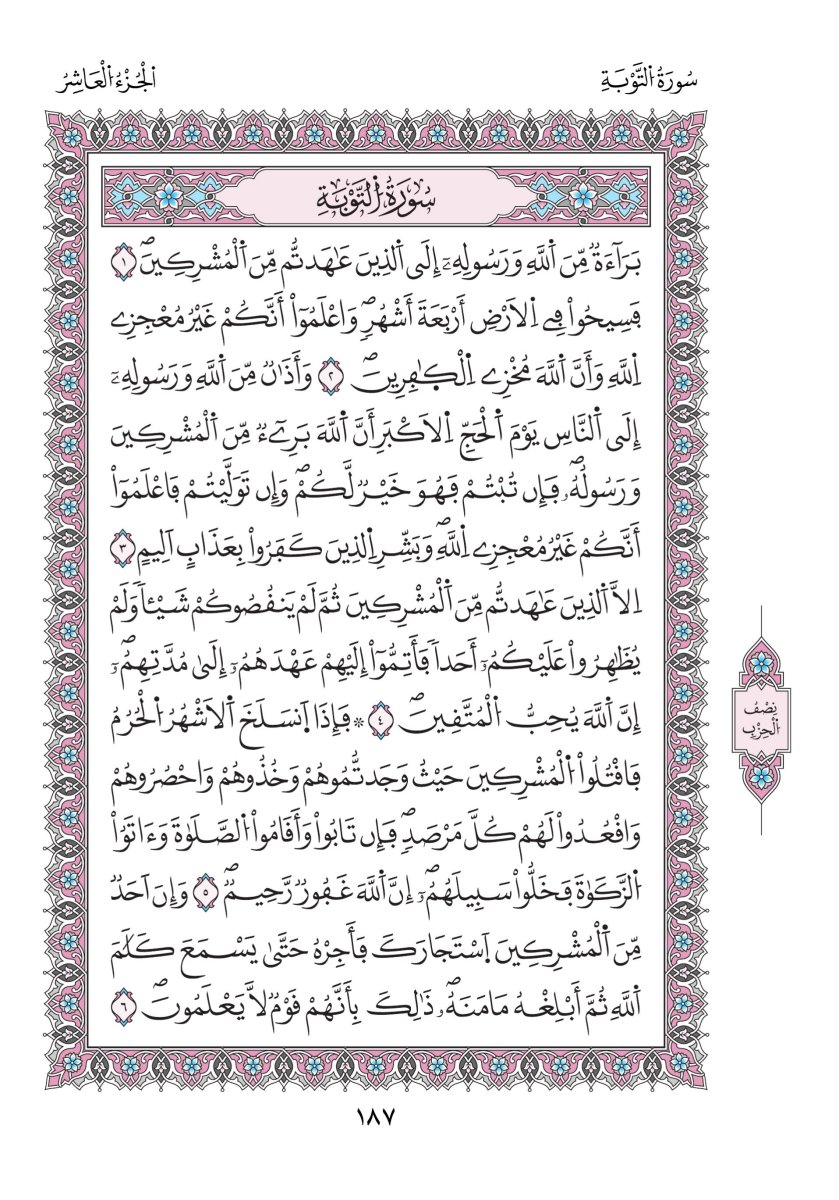 سُورَةُ التَّوْبَةِ
الْجُزْءُ الْعَاشِرُ
سُورَةُ التَّوْبَةِ
بَرَآءَةٌ مِّنَ اَ۬للَّهِ وَرَسُولِهِۦٓ إِلَى اَ۬لذِينَ عَٰهَدتُّم مِّنَ اَ۬لْمُشْرِكِينَۖ ١
فَسِيحُواْ فِے اِ۬لَارْضِ أَرْبَعَةَ أَشْهُرٖۖ وَاعْلَمُوٓاْ أَنَّكُمْ غَيْرُ مُعْجِزِے
اِ۬للَّهِ وَأَنَّ اَ۬للَّهَ مُخْزِے اِ۬لْكٰ۪فِرِينَۖ ٢ وَأَذَٰنٌ مِّنَ اَ۬للَّهِ وَرَسُولِهِۦٓ
إِلَى اَ۬لنَّاسِ يَوْمَ اَ۬لْحَجِّ اِ۬لَاكْبَرِ أَنَّ اَ۬للَّهَ بَرِےٓءٌ مِّنَ اَ۬لْمُشْرِكِينَ
وَرَسُولُهُۥۖ فَإِن تُبْتُمْ فَهُوَ خَيْرٌ لَّكُمْۖ وَإِن تَوَلَّيْتُمْ فَاعْلَمُوٓاْ
أَنَّكُمْ غَيْرُ مُعْجِزِے اِ۬للَّهِۖ وَبَشِّرِ اِ۬لذِينَ كَفَرُواْ بِعَذَابٍ اَلِيمٍ ٣
اِلَّا اَ۬لذِينَ عَٰهَدتُّم مِّنَ اَ۬لْمُشْرِكِينَ ثُمَّ لَمْ يَنقُصُوكُمْ شَيْـٔاٗ وَلَمْ
يُظَٰهِرُواْ عَلَيْكُمُۥٓ أَحَداٗ فَأَتِمُّوٓاْ إِلَيْهِمْ عَهْدَهُمُۥٓ إِلَىٰ مُدَّتِهِمُۥٓۖ
إِنَّ اَ۬للَّهَ يُحِبُّ اُ۬لْمُتَّقِينَۖ ٤ ۞ فَإِذَا اَ۪نسَلَخَ اَ۬لَاشْهُرُ اُ۬لْحُرُمُ
فَاقْتُلُواْ اُ۬لْمُشْرِكِينَ حَيْثُ وَجَدتُّمُوهُمْ وَخُذُوهُمْ وَاحْصُرُوهُمْ
وَاقْعُدُواْ لَهُمْ كُلَّ مَرْصَدٖۖ فَإِن تَابُواْ وَأَقَامُواْ اُ۬لصَّلَوٰةَ وَءَاتَوُاْ
اُ۬لزَّكَوٰةَ فَخَلُّواْ سَبِيلَهُمُۥٓۖ إِنَّ اَ۬للَّهَ غَفُورٌ رَّحِيمٌۖ ٥ وَإِنَ اَحَدٌ
مِّنَ اَ۬لْمُشْرِكِينَ اَ۪سْتَجَارَكَ فَأَجِرْهُ حَتَّىٰ يَسْمَعَ كَلَٰمَ
اَ۬للَّهِ ثُمَّ أَبْلِغْهُ مَامَنَهُۥۖ ذَٰلِكَ بِأَنَّهُمْ قَوْمٌ لَّا يَعْلَمُونَۖ ٦
نِصْفُ
الْحِزْبِ
١٨٧